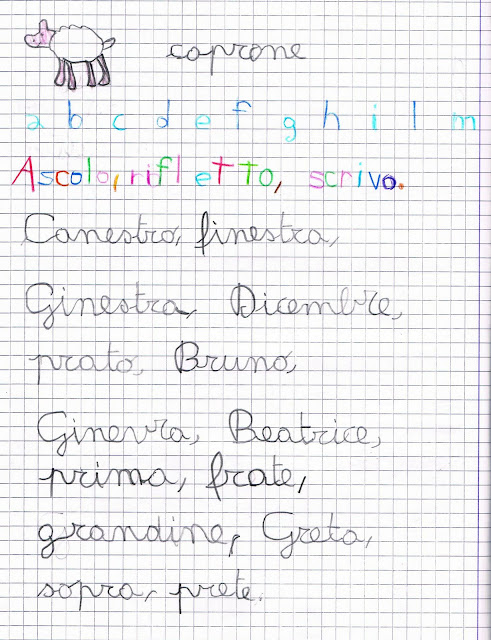 caprone
a b c d e f g h i l m
Ascolo, rifletto, scrivo.
Canestro, finestra,
Ginestra, Dicembre,
prato, Bruno,
Ginevra, Beatrice,
prima, frate,
grandine, Greta,
sopra, prete.